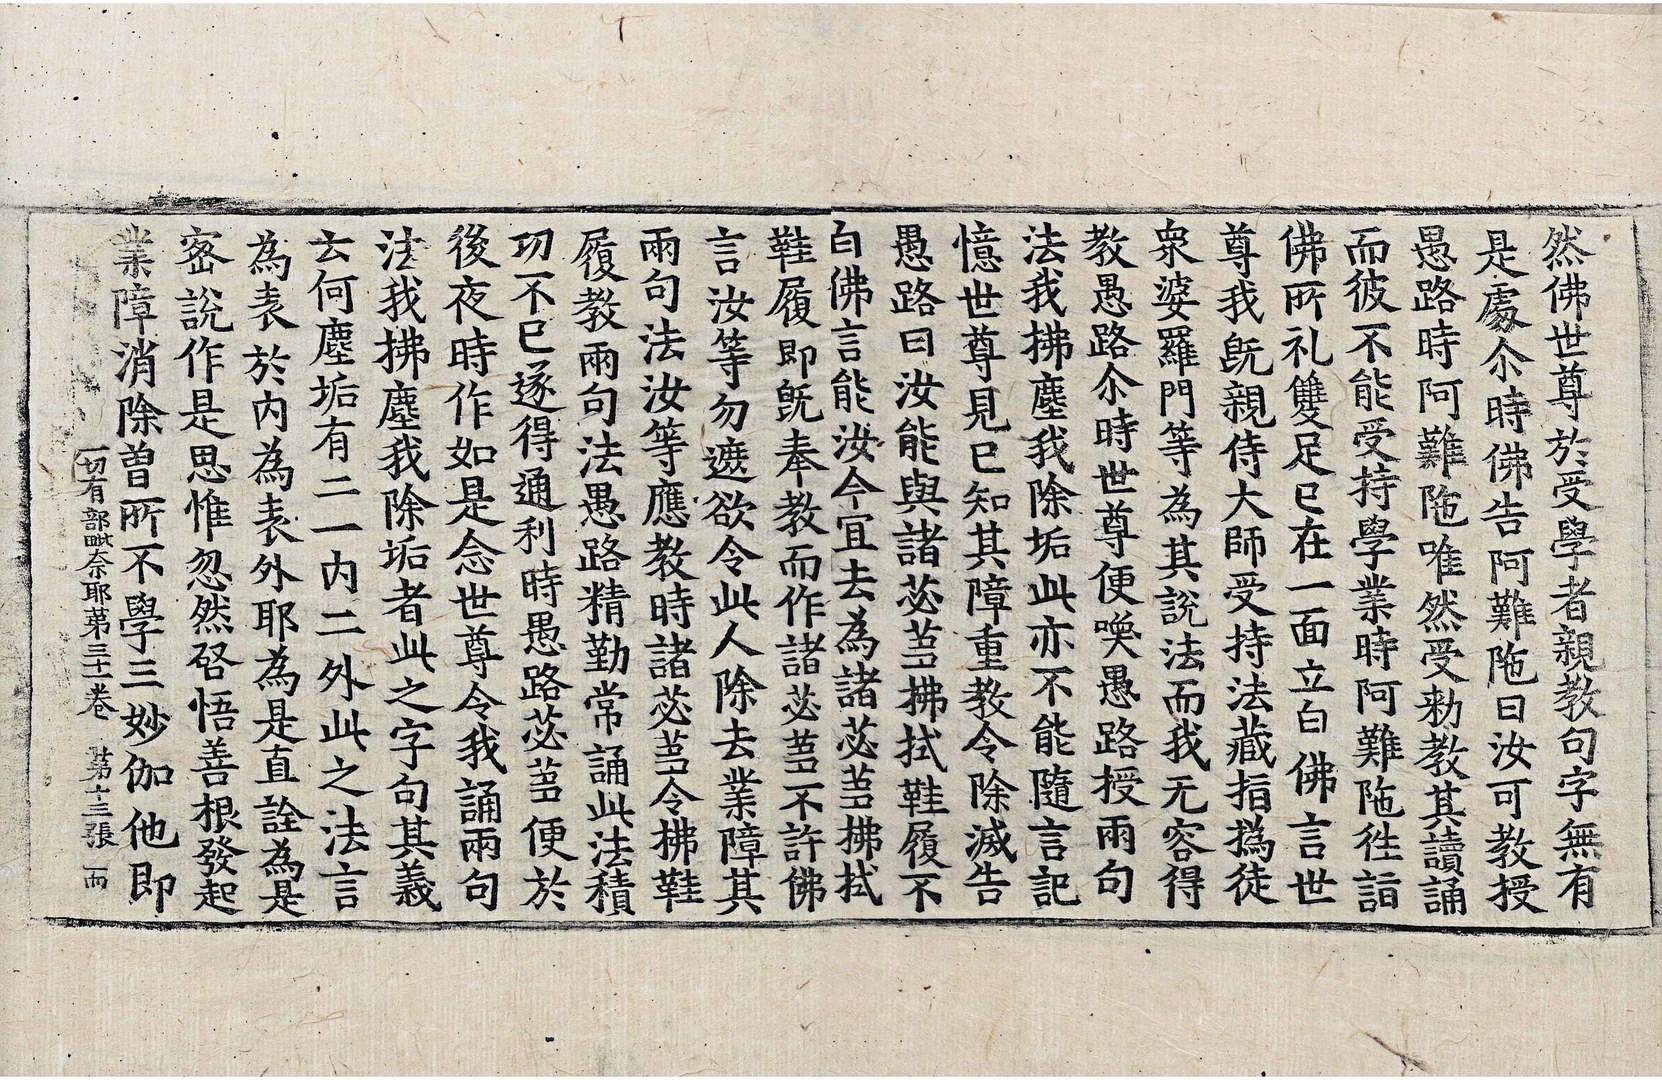 然佛世尊於受學者親教句字無有
是處尒時佛告阿難陁曰汝可教授
愚路時阿難陁唯然受勑教其讀誦
而彼不能受持學業時阿難陁徃詣
佛所礼雙足已在一面立白佛言世
尊我旣親侍大師受持法藏指撝徒
衆婆羅門等為其說法而我无容得
教愚路尒時世尊便喚愚路授兩句
法我拂塵我除垢此亦不能隨言記
憶世尊見已知其障重教令除滅告
愚路曰汝能與諸苾蒭拂拭鞋履不
白佛言能汝今宜去為諸苾蒭拂拭
鞋履即旣奉教而作諸苾蒭不許佛
言汝等勿遮欲令此人除去業障其
兩句法汝等應教時諸苾蒭令拂鞋
履教兩句法愚路精勤常誦此法積
功不已遂得通利時愚路苾蒭便於
後夜時作如是念世尊令我誦兩句
法我拂塵我除垢者此之字句其義
云何塵垢有二一內二外此之法言
為表於內為表外耶為是直詮為是
密說作是思惟忽然啓悟善根發起
業障消除曾所不學三妙伽他即
一切有部毗奈耶第三十一卷 第十三張 而